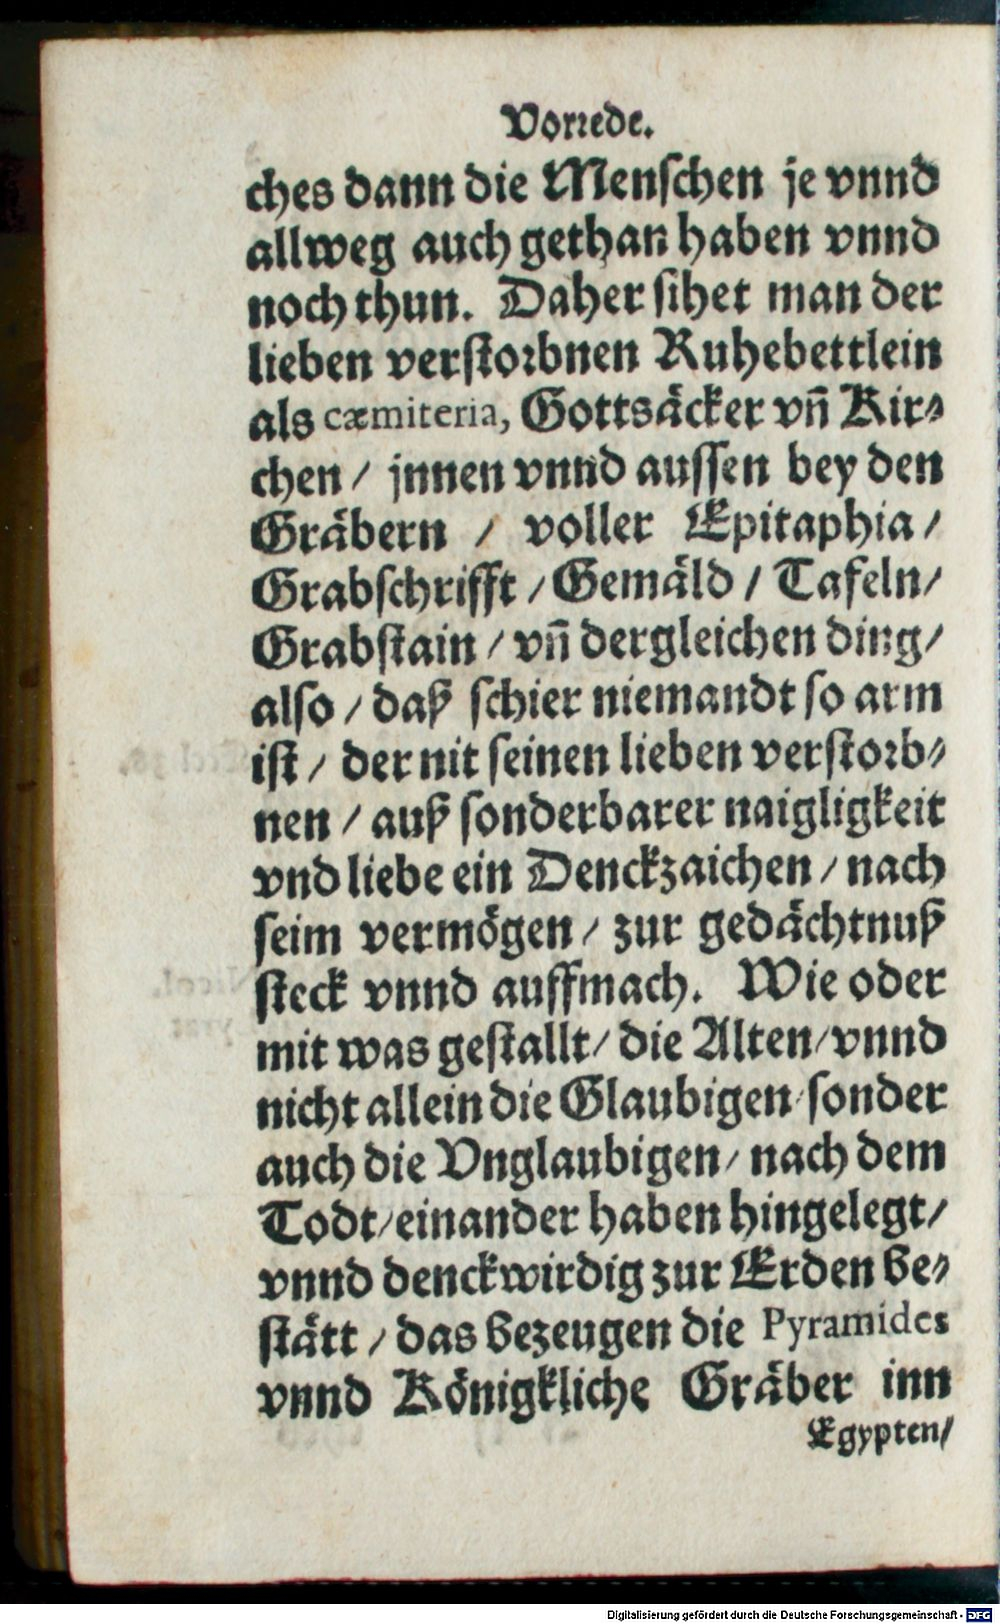 Vorrede.
ches dann die Menschen je vnnd
allweg auch gethan haben vnnd
noch thun. Daher sihet man der
lieben verstorbnen Ruhebettlein
als cæmiteria, Gottsäcker vn̄ Kir⸗
chen / jnnen vnnd aussen bey den
Gräbern / voller Epitaphia /
Grabschrifft / Gemäld / Tafeln /
Grabstain / vn̄ dergleichen ding /
also / daß schier niemandt so arm
ist / der nit seinen lieben verstorb⸗
nen / auß sonderbarer naigligkeit
vnd liebe ein Denckzaichen / nach
seim vermögen / zur gedächtnuß
steck vnnd auffmach. Wie oder
mit was gestallt / die Alten / vnnd
nicht allein die Glaubigen / sonder
auch die Vnglaubigen / nach dem
Todt / einander haben hingelegt /
vnnd denckwirdig zur Erden be⸗
stätt / das bezeugen die Pyramides
vnnd Königkliche Gräber inn
Egypten /
Digitalisierung gefördert durch die Deutsche Forschungsgemeinschaft - DFG